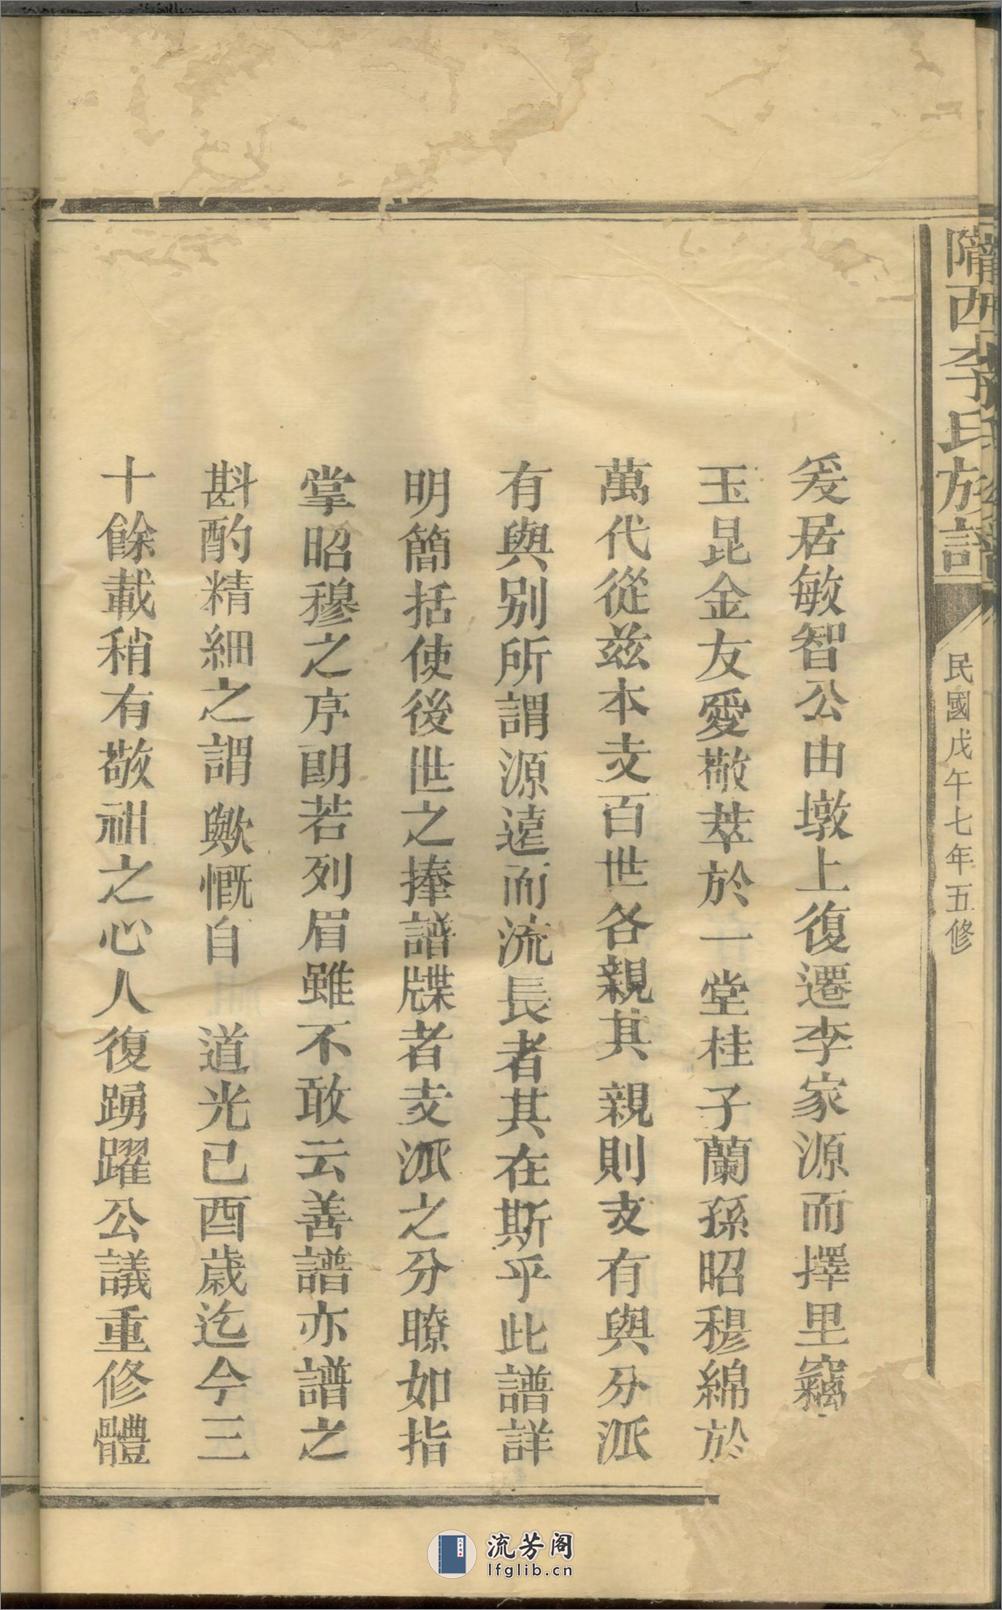 隴西李氏族譜
民國戊午七年五修
爰居敏智公由墩上復遷李家源而擇里竊
玉昆金友愛敬萃於一堂桂子蘭孫昭穆綿於
萬代從玆本支百世各親其親則支有與分派
有與别所謂源遠而流長者其在斯乎此譜詳
明簡括使後世之捧譜牒者支派之分瞭如指
掌昭穆之序朗若列眉雖不敢云善譜亦譜之
斟酌精細之謂歟慨自 道光己酉歲迄今三
十餘載稍有敬祖之心人復踴躍公議重修體
流芳阁
lfglib.cn